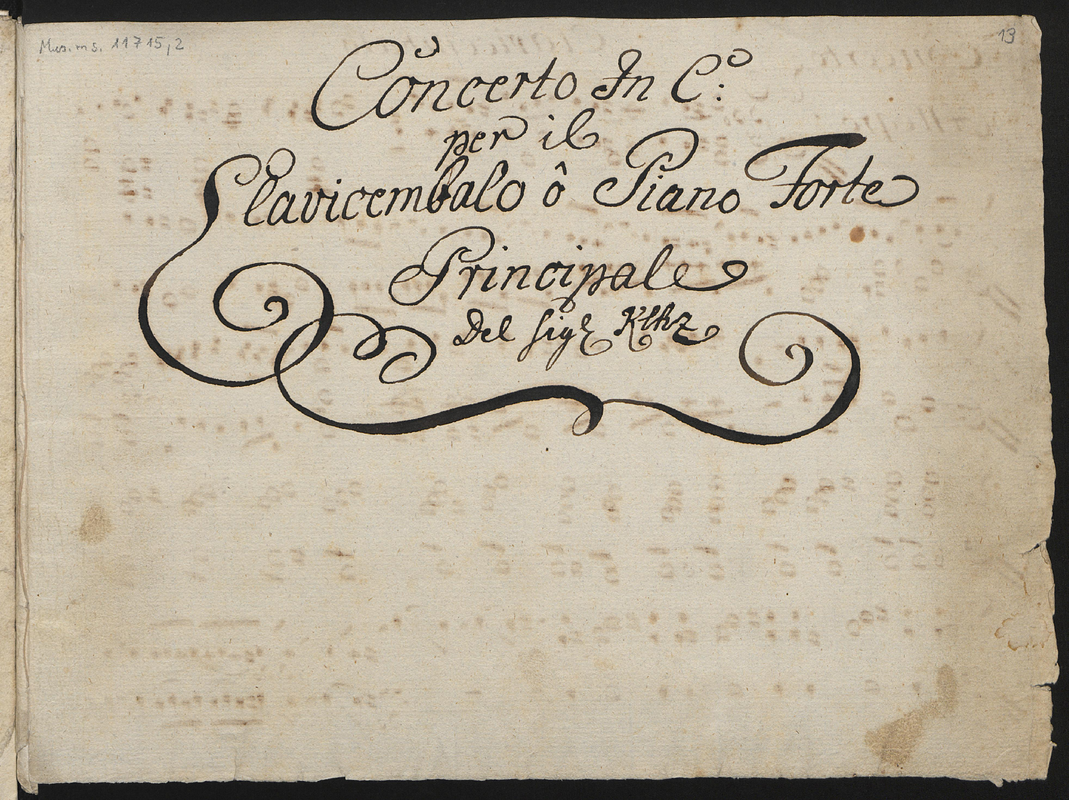 Mus. ms. 11715,2
13
Concerto In C.o:
per il
Clavicembalo ô Piano Forte
Principale
Del Sigr